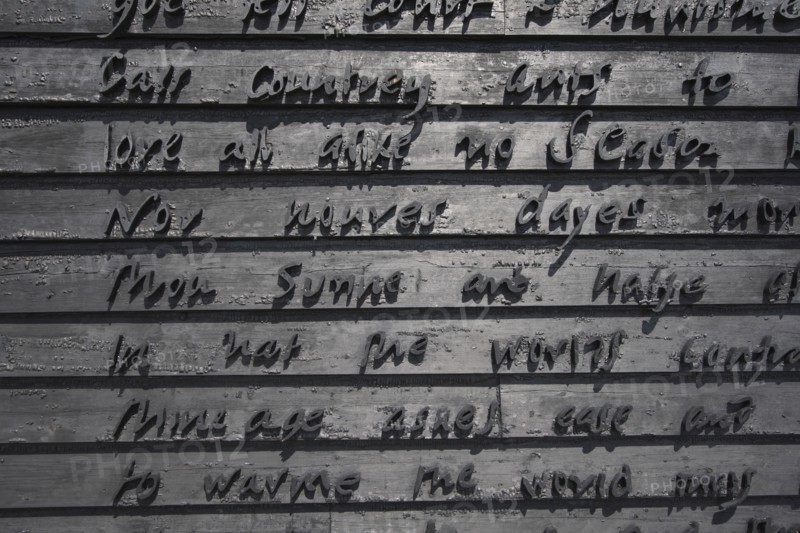 goe tell court huntsme
Call Countrey ants to
love all alike no Season
Nor houres dayes mon
Thou Sunne art halfe a
In that the worlds contra
Thine age askes ease and
to warme the world